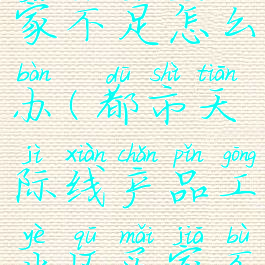 不足怎么
bàn dū shì tiān
办(都市天
jì xiàn chǎn pǐn gōng
际线产品工
yè qū mǎi jiā bù
业区买家不